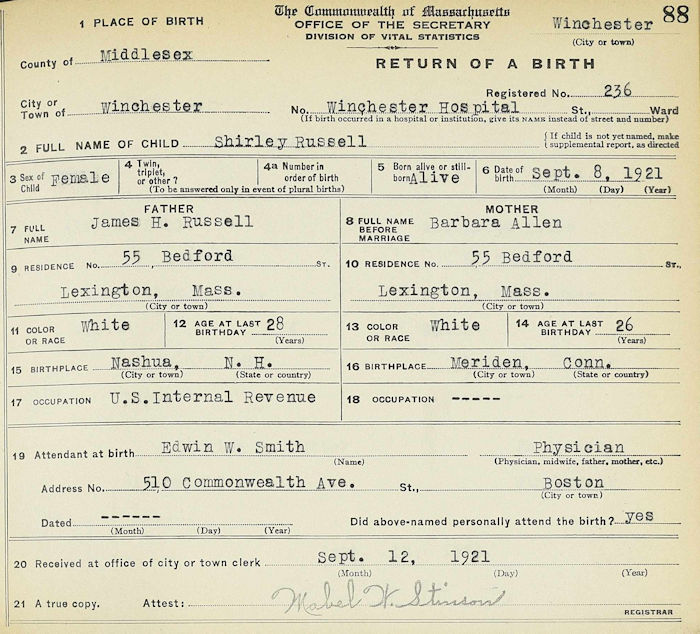 The Commonwealth of Massachusetts
OFFICE OF THE SECRETARY
DIVISION OF VITAL STATISTICS
RETURN OF A BIRTH
Winchester
(City or town)
88
1 PLACE OF BIRTH
County of Middlesex
Registered No. 236
City or Town of Winchester No. Winchester Hospital St., Ward
(If birth occurred in a hospital or institution, give its NAME instead of street and number)
2 FULL NAME OF CHILD Shirley Russell { If child is not yet named, make
supplemental report, as directed
3 Sex of Child Female 4 Twin, triplet, or other? 4a Number in order of birth 5 Born alive or still-born Alive 6 Date of birth Sept. 8, 1921
(To be answered only in event of plural births) (Month) (Day) (Year)
FATHER MOTHER
7 FULL NAME James H. Russell 8 FULL NAME BEFORE MARRIAGE Barbara Allen
9 RESIDENCE No. 55 Bedford ST. 10 RESIDENCE No. 55 Bedford ST.,
Lexington, Mass. Lexington, Mass.
(City or town) (City or town)
11 COLOR OR RACE White 12 AGE AT LAST BIRTHDAY 28 13 COLOR OR RACE White 14 AGE AT LAST BIRTHDAY 26
(Years) (Years)
15 BIRTHPLACE Nashua, N. H. 16 BIRTHPLACE Meriden, Conn.
(City or town) (State or country) (City or town) (State or country)
17 OCCUPATION U.S.Internal Revenue 18 OCCUPATION -----
19 Attendant at birth Edwin W. Smith Physician
(Name) (Physician, midwife, father, mother, etc.)
Address No. 510 Commonwealth Ave. St., Boston
(City or town)
Dated ------ Did above-named personally attend the birth? yes
(Month) (Day) (Year)
20 Received at office of city or town clerk Sept. 12, 1921
(Month) (Day) (Year)
21 A true copy. Attest: Mabel W. Stinson
REGISTRAR